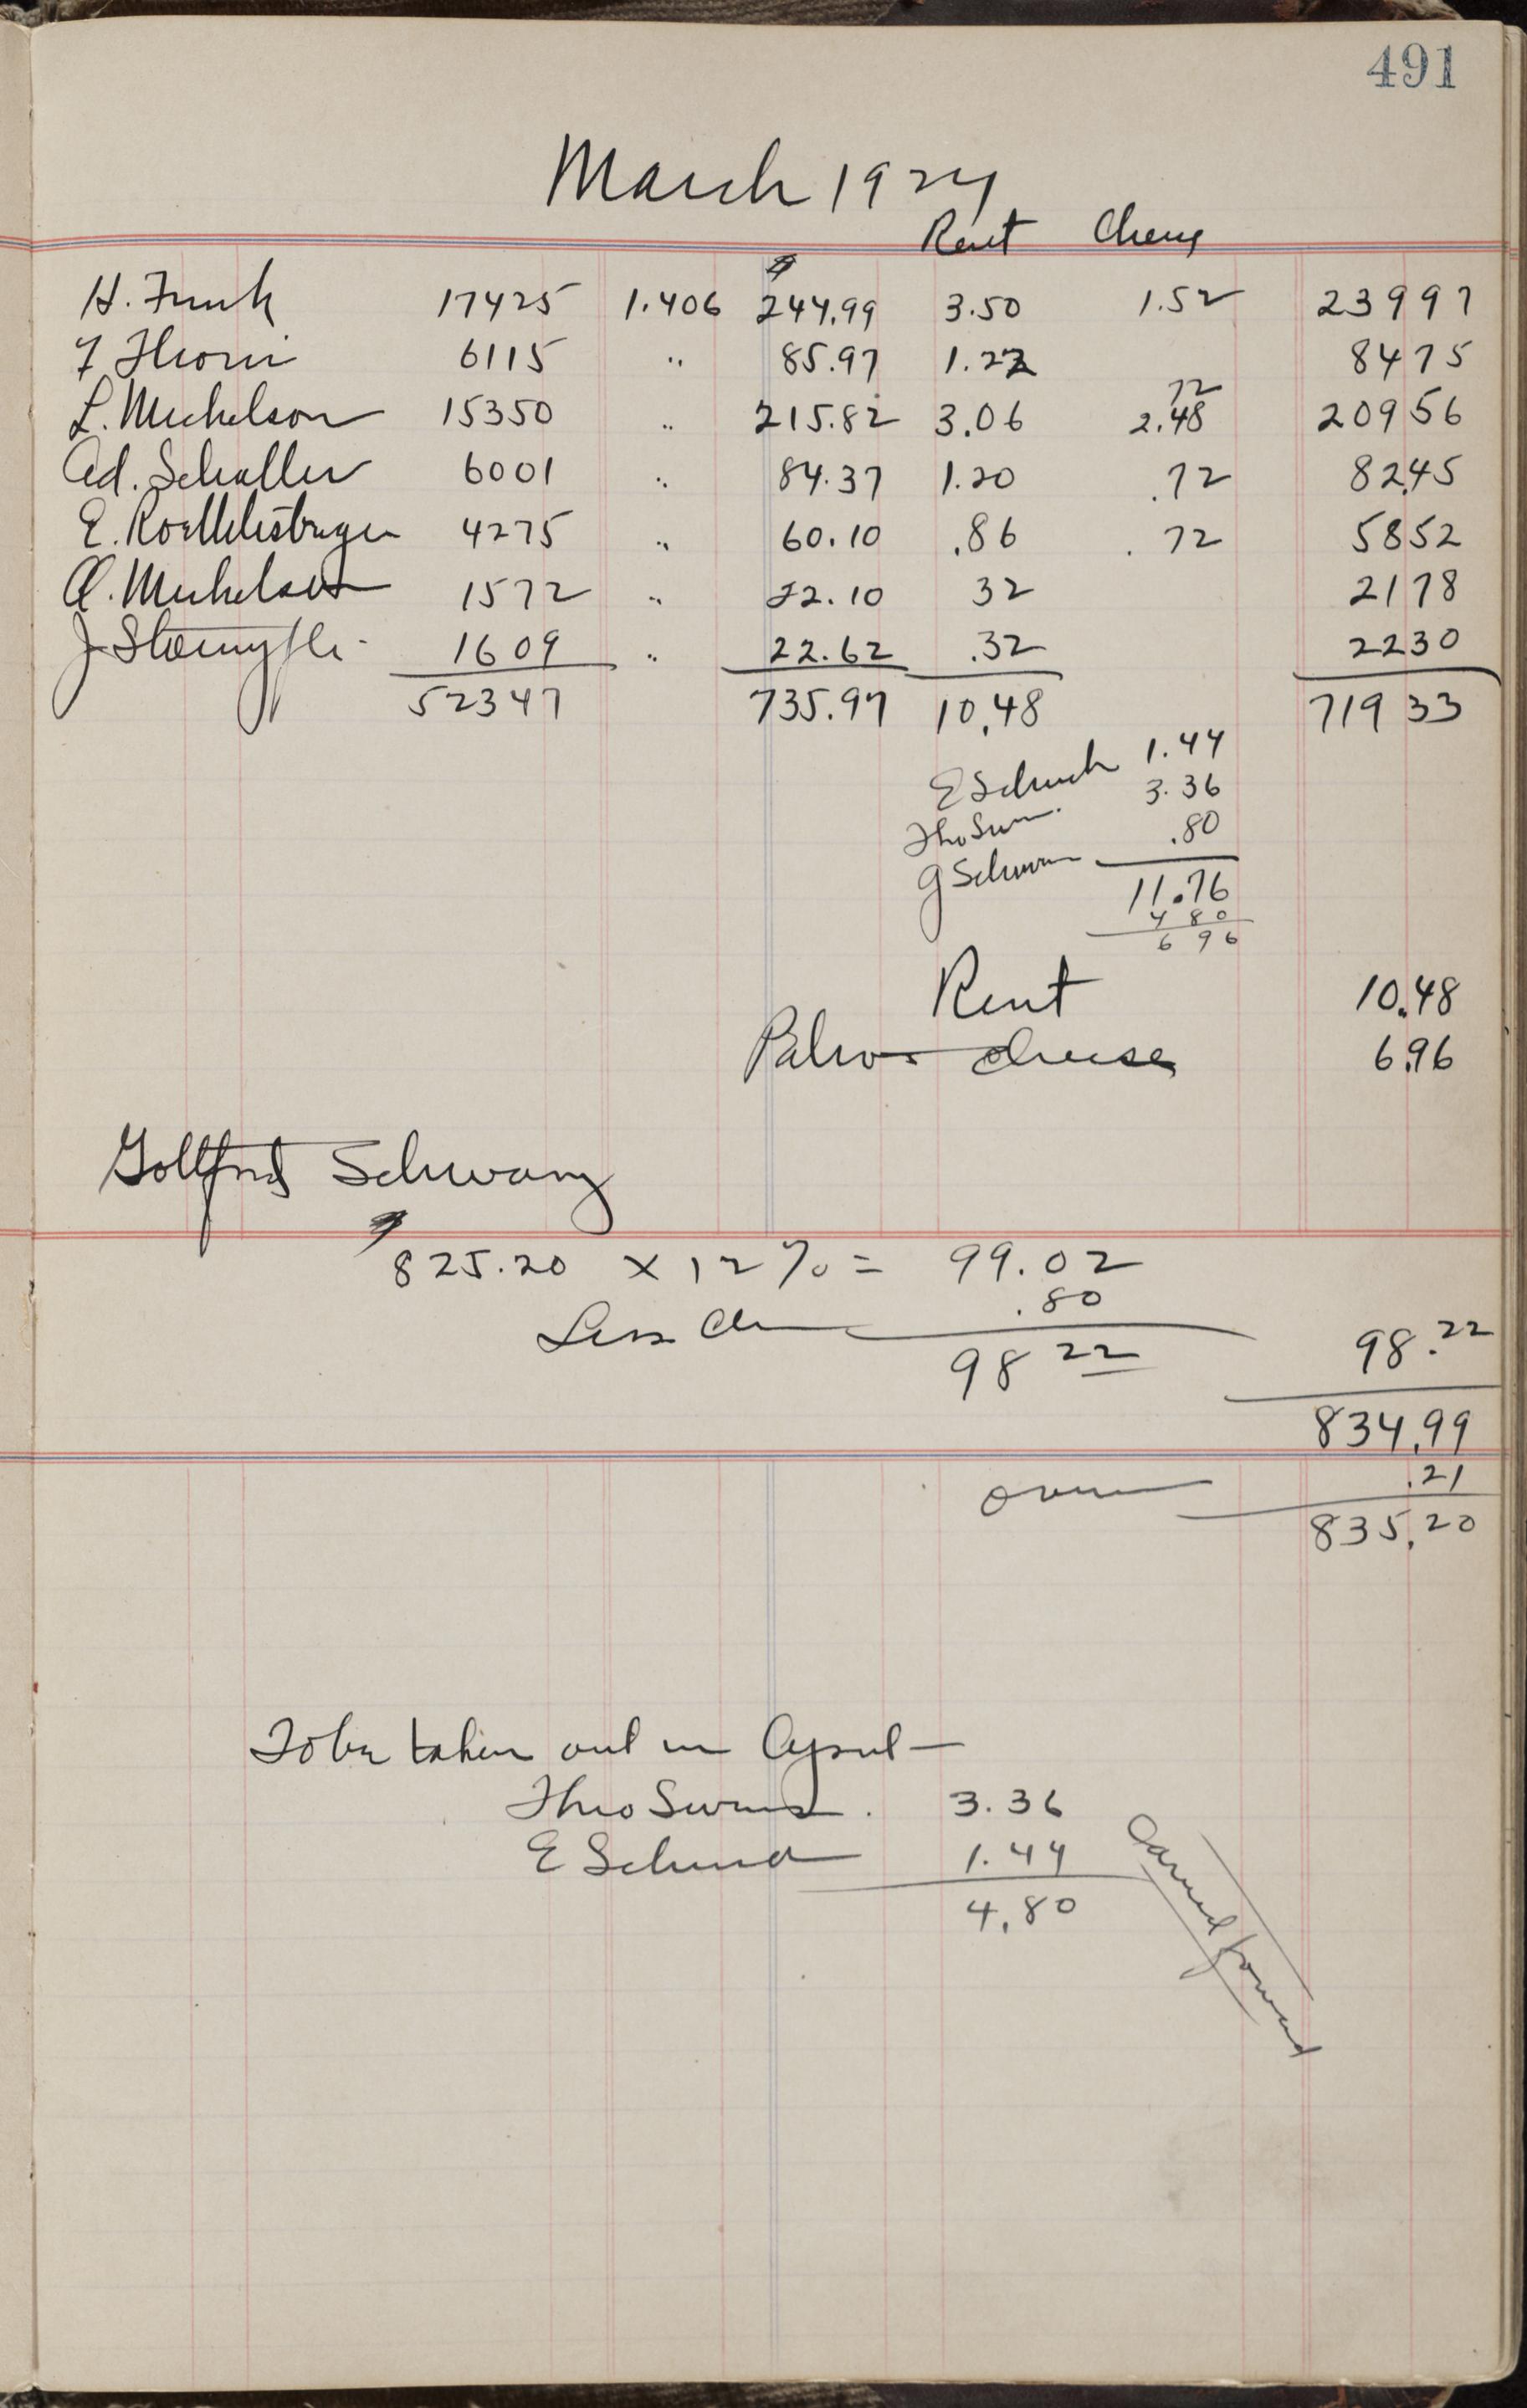 491
March 1924
Rent Chees
H. Funk 17425 1.406 $244.99 3.50 1.52 239 97
F Thoni 6115 " 85.97 1.22 84 75
72
L. Michelson 15350 " 215.82 3.06 2.48 209 56
Ad. Schaller 6001 " 84.37 1.20 .72 82.45
E. Roethlisberger 4275 " 60.10 .86 .72 58 52
A. Michelson 1572 " 22.10 32 21 78
J 1609 " 22.62 .32 22 30
52347 735.97 10.48 719 33
E Schuch 1.44
Theo 3.36
G Schwarz .80
11.76
4 80
6 96
Rent 10.48
Patrons cheese 6.96
Gottfried Schwarz
$825.20 x 12% = 99.02
Less Ch .80
98 22 98.22
834.99
over .21
835.20
To be taken out in April
Theo 3.36
E 1.44
4.80
Carried forward